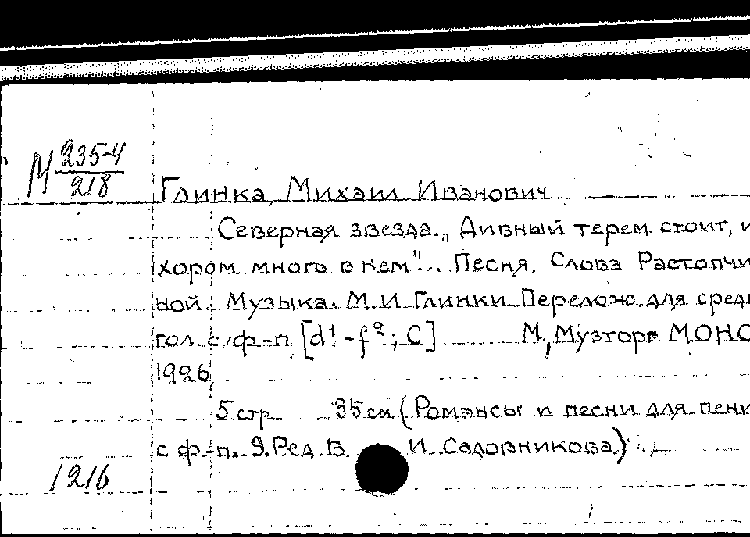 М 235-4
218
Глинка, Михаил Иванович
Северная звезда. „Дивный терем стоит, и
хором много в нем"... Песня. Слова Растопчи
ной. Музыка М.И. Глинки Перелож. для сред
гол. с ф-п. [d¹-f²; C] М, Музторг МОНО
1926
5 стр. 35 см (Романсы и песни для пени
с ф-п. 9. Ред. В. И. Садовникова)
1216